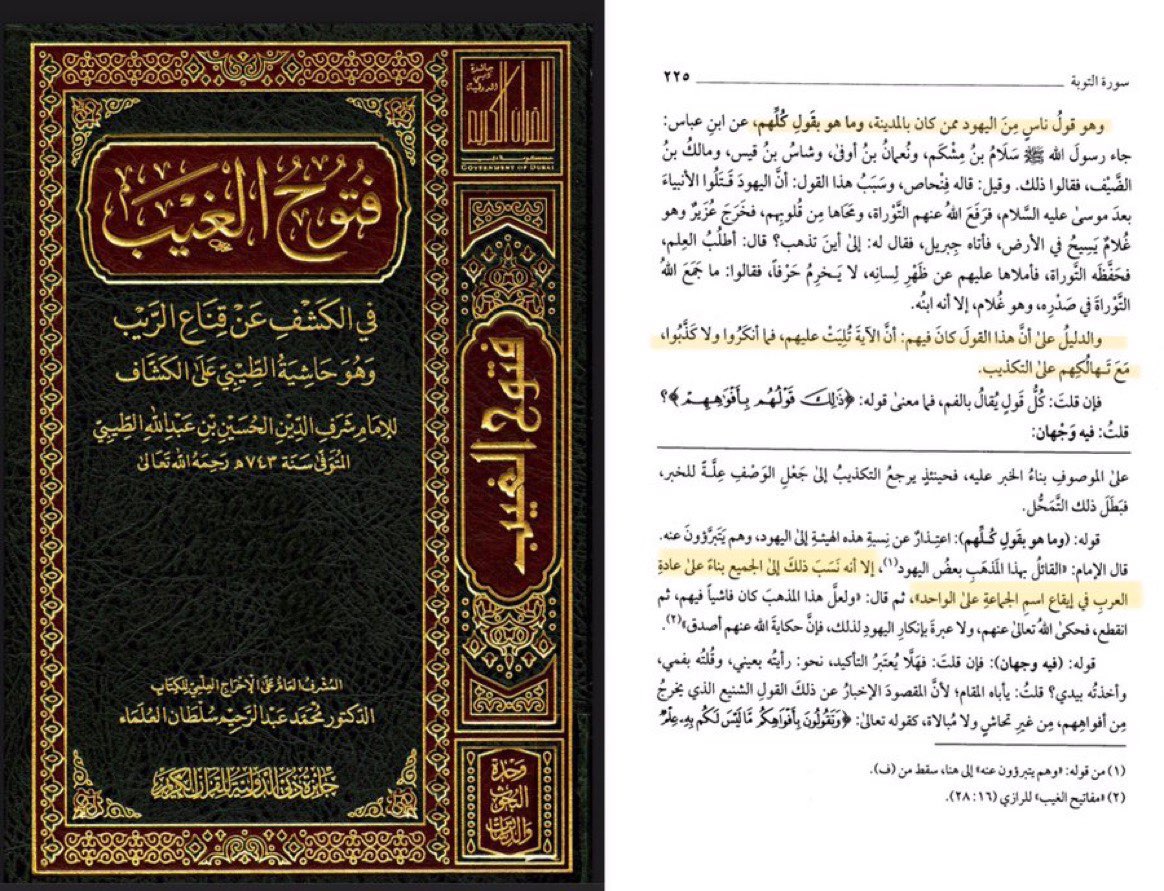 فُتُوحُ الْغَيْبِ
في الكَشْفِ عَنْ قِنَاعِ الرَّيْبِ
وَهُوَ حَاشِيَةُ الطِّيْبِيِّ عَلَى الكَشَّاف
للإمَامِ شَرَفِ الدِّينِ الحُسَيْنِ بْنِ عَبْدِ اللهِ الطِّيْبِيِّ
المُتَوَفَّى سَنَة ٧٤٣ هـ رَحِمَهُ اللهُ تَعَالَى
المُشْرِفُ العَامُّ عَلَى الإخْرَاجِ العِلْمِيِّ لِلْكِتَابِ
الدكتور مُحَمَّد عَبْد الرَّحِيم سُلْطَان العُلَمَاء
جَائِزَةُ دُبَيّ الدَّوْلِيَّة لِلْقُرْآنِ الكَرِيمِ
للقرآن الكريم
GOVERNMENT OF DUBAI
فتوح الغيب
وَحْدَةُ
البُحُوثِ
وَالدِّرَاسَاتِ
سورة التوبة ٢٢٥
وهو قولُ ناسٍ مِنَ اليهود ممن كان بالمدينة، وما هو بقَولِ كُلِّهم، عن ابنِ عباس:
جاء رسولَ الله ﷺ سَلَامُ بنُ مِشْكَم، ونُعمانُ بنُ أوفى، وشاسُ بنُ قيس، ومالكُ بنُ
الضَّيْف، فقالوا ذلك. وقيل: قاله فِنْحاص، وسَبَبُ هذا القول: أنَّ اليهودَ قَتَلُوا الأنبياءَ
بعدَ موسىٰ عليه السَّلام، فرَفَعَ اللهُ عنهم التَّوْراة، ومَحَاها مِن قُلوبِهم، فخَرَجَ عُزَيْرٌ وهو
غُلامٌ يَسِيحُ في الأرض، فأتاه جِبريل، فقال له: إلىٰ أينَ تذهب؟ قال: أطلُبُ العِلم،
فحَفَّظَه التَّوراة، فأملاها عليهم عن ظَهْرِ لِسانِه، لا يَخرِمُ حَرْفاً، فقالوا: ما جَمَعَ اللهُ
التَّوْراةَ في صَدْرِه، وهو غُلام، إلا أنه ابنُه.
والدليلُ علىٰ أنَّ هذا القولَ كانَ فيهم: أنَّ الآيةَ تُلِيَتْ عليهم، فما أنكَرُوا ولا كَذَّبُوا،
مَعَ تَهالُكِهم علىٰ التكذيب.
فإن قلتَ: كُلُّ قولٍ يُقالُ بالفم، فما معنىٰ قوله: ﴿ذَٰلِكَ قَوْلُهُم بِأَفْوَاهِهِمْ﴾؟
قلتُ: فيه وَجْهان:
علىٰ الموصوفِ بناءُ الخبر عليه، فحينئذٍ يرجعُ التكذيبُ إلىٰ جَعْلِ الوَصْفِ عِلَّةً للخبر،
فبَطَلَ ذلك التَّمَحُّل.
قوله: (وما هو بقَولِ كُلِّهم): اعتِذارٌ عن نِسبةِ هذه الهيئةِ إلىٰ اليهود، وهم يَتَبرَّؤونَ عنه.
قال الإمام: «القائلُ بهذا المَذهَبِ بعضُ اليهود(١)، إلا أنه نَسَبَ ذلكَ إلىٰ الجميع بناءً علىٰ عادةِ
العربِ في إيقاع اسمِ الجماعةِ علىٰ الواحد»، ثم قال: «ولعلَّ هذا المذهبَ كان فاشياً فيهم، ثم
انقطع، فحكىٰ اللهُ تعالىٰ عنهم، ولا عبرةَ بإنكارِ اليهودِ لذلك، فإنَّ حكايةَ الله عنهم أصدق»(٢).
قوله: (فيه وجهان): فإن قلتَ: فهَلَّا يُعتبَرُ التأكيد، نحو: رأيتُه بعيني، وقُلتُه بفمي،
وأخذتُه بيدي؟ قلتُ: يأباه المقام؛ لأنَّ المقصودَ الإخبارُ عن ذلكَ القولِ الشنيع الذي يخرجُ
مِن أفواهِهم، مِن غيرِ تحاشٍ ولا مُبالاة، كقوله تعالىٰ: ﴿وَتَقُولُونَ بِأَفْوَاهِكُم مَّا لَيْسَ لَكُم بِهِ عِلْمٌ
(١) من قوله: «وهم يتبرؤون عنه» إلى هنا، سقط من (ف).
(٢) «مفاتيح الغيب» للرازي (١٦: ٢٨).